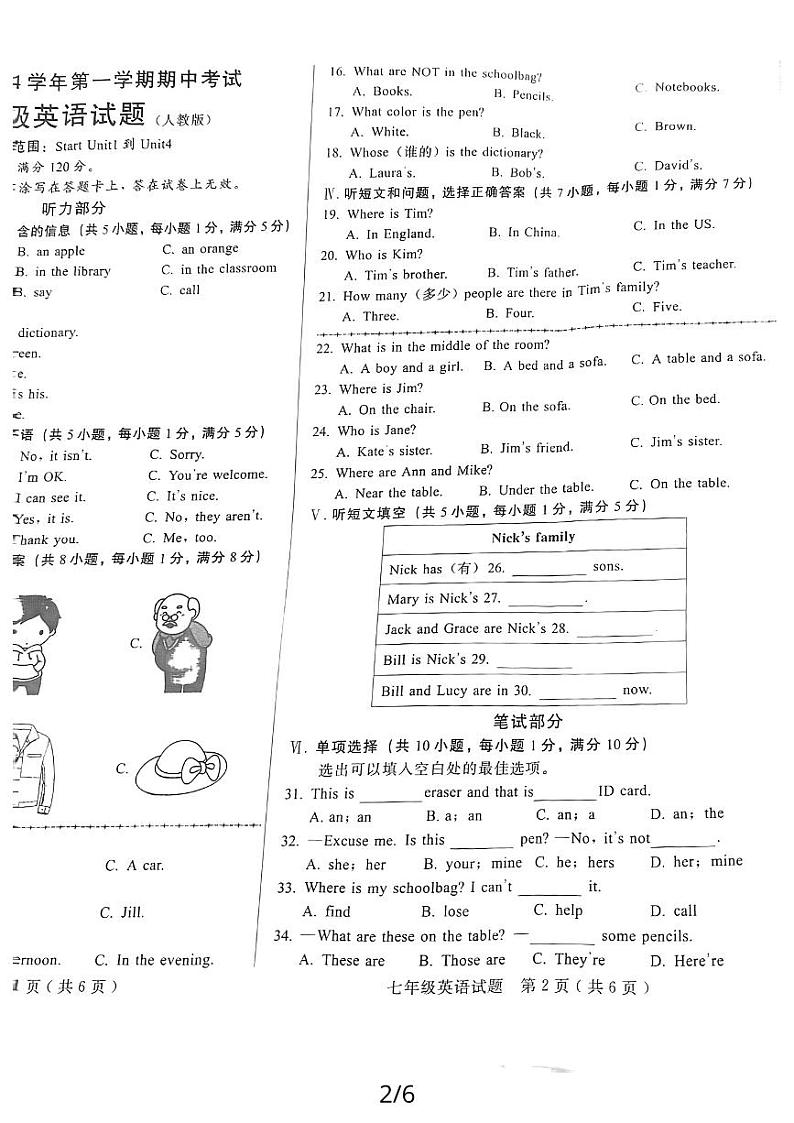 学年第一学期期中考试
级英语试题（人教版）
范围：Start Unit1 到 Unit4
满分 120 分。
涂写在答题卡上，答在试卷上无效。
听力部分
含的信息（共 5 小题，每小题 1 分，满分 5 分）
B. an apple C. an orange
B. in the library C. in the classroom
B. say C. call
dictionary.
is his.
语（共 5 小题，每小题 1 分，满分 5 分）
No, it isn't. C. Sorry.
I'm OK. C. You're welcome.
I can see it. C. It's nice.
Yes, it is. C. No, they aren't.
Thank you. C. Me, too.
案（共 8 小题，每小题 1 分，满分 8 分）
C.
C.
C. A car.
C. Jill.
ernoon. C. In the evening.
1 页（共 6 页）
16. What are NOT in the schoolbag?
A. Books. B. Pencils. C. Notebooks.
17. What color is the pen?
A. White. B. Black. C. Brown.
18. Whose（谁的）is the dictionary?
A. Laura's. B. Bob's. C. David's.
Ⅳ. 听短文和问题，选择正确答案（共 7 小题，每小题 1 分，满分 7 分）
19. Where is Tim?
A. In England. B. In China. C. In the US.
20. Who is Kim?
A. Tim's brother. B. Tim's father. C. Tim's teacher.
21. How many（多少）people are there in Tim's family?
A. Three. B. Four. C. Five.
22. What is in the middle of the room?
A. A boy and a girl. B. A bed and a sofa. C. A table and a sofa.
23. Where is Jim?
A. On the chair. B. On the sofa. C. On the bed.
24. Who is Jane?
A. Kate's sister. B. Jim's friend. C. Jim's sister.
25. Where are Ann and Mike?
A. Near the table. B. Under the table. C. On the table.
Ⅴ. 听短文填空（共 5 小题，每小题 1 分，满分 5 分）
Nick's family
Nick has（有）26. ________ sons.
Mary is Nick's 27. ________.
Jack and Grace are Nick's 28. ________.
Bill is Nick's 29. ________
Bill and Lucy are in 30. ________ now.
笔试部分
Ⅵ. 单项选择（共 10 小题，每小题 1 分，满分 10 分）
选出可以填入空白处的最佳选项。
31. This is ________ eraser and that is ________ ID card.
A. an; an B. a; an C. an; a D. an; the
32. —Excuse me. Is this ________ pen? —No, it's not ________.
A. she; her B. your; mine C. he; hers D. her; mine
33. Where is my schoolbag? I can't ________ it.
A. find B. lose C. help D. call
34. —What are these on the table? —________ some pencils.
A. These are B. Those are C. They're D. Here're
七年级英语试题 第 2 页（共 6 页）
2/6